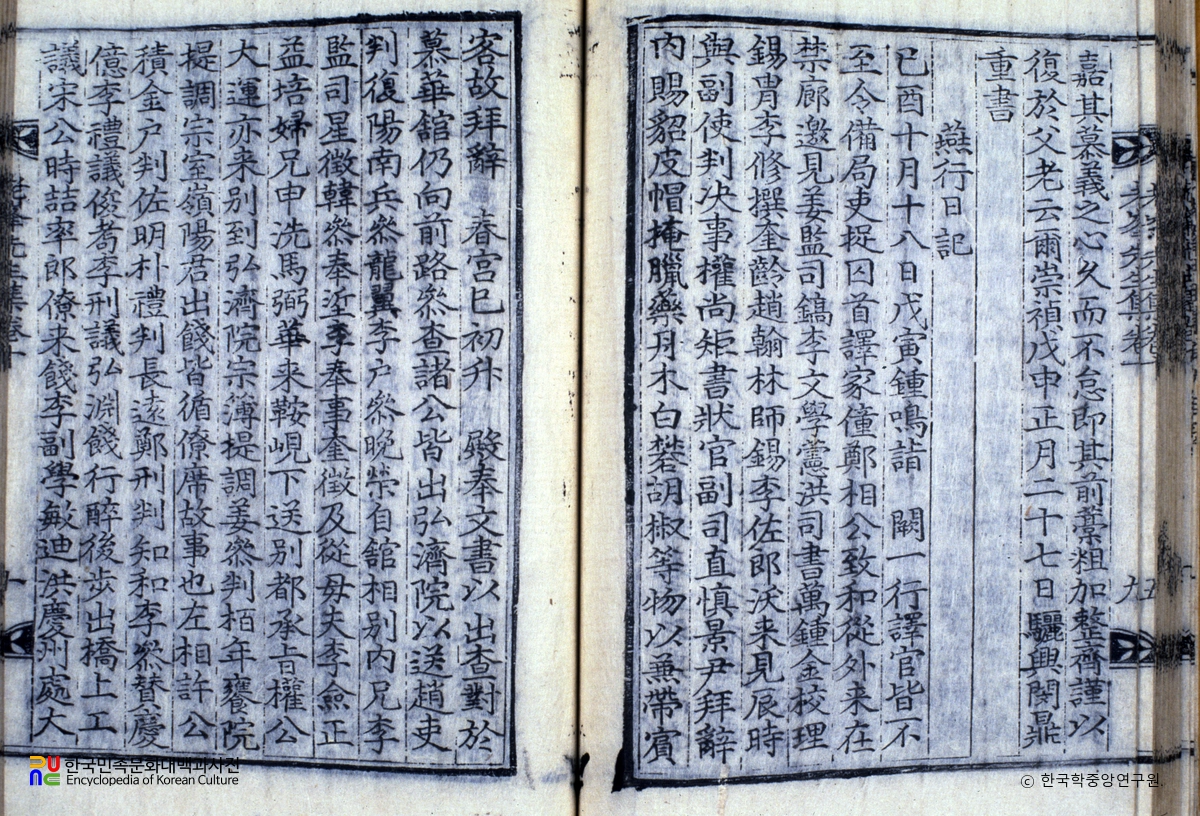 嘉其慕義之心久而不怠即其前藁粗加整齊謹以
復於父老云爾崇禎戊申正月二十七日驪興閔鼎
重書
燕行日記
已酉十月十八日戊寅鍾鳴詣 闕一行譯官皆不
至令備局吏捉囚首譯家僮鄭相公致和從外来在
禁廊邀見姜監司鎬李文學䆻洪司書萬鍾金校理
錫胄李修撰奎齡趙翰林師錫李佐郎沃来見辰時
與副使判决事權尚矩書狀官副司直慎景尹拜辭
内賜貂皮帽掩臘藥丹木白礬胡椒等物以兼帶賓
客故拜辭 春宮巳初升 殿奉文書以出查對於
慕華舘仍向前路叅查諸公皆出弘濟院以送趙吏
判復陽南兵叅龍翼李户叅晚榮自舘相別内兄李
監司星徵韓叅奉垽李奉事奎徵及從毋夫李僉正
孟培婦兄申洗馬弼華来鞍峴下送別都承旨權公
大運亦来別到弘濟院宗簿提調姜叅判栢年饔院
提調宗室嶺陽君出餞皆循僚席故事也左相許公
積金户判佐明朴禮判長遠鄭刑判知和李叅賛慶
億李禮議俊耉李刑議弘淵餞行醉後步出橋上工
議宋公時喆率郎僚来餞李副學敏迪洪慶州處大
한국민족문화대백과사전
Encyclopedia of Korean Culture
ⓒ 한국학중앙연구원.